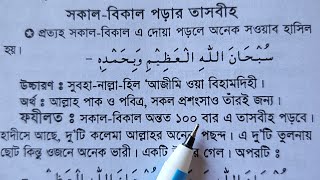 সকাল-বিকাল পড়ার তাসবীহ
প্রত্যহ সকাল-বিকাল এ দোয়া পড়লে অনেক সওয়াব হাসিল
হয়।
سُبْحَانَ اللهِ الْعَظِيْمِ وَبِحَمْدِهِ -
উচ্চারণ : সুবহা-নাল্লা-হিল 'আজীমি ওয়া বিহামদিহী।
অর্থ : আল্লাহ পাক ও পবিত্র, সকল প্রশংসাও তাঁরই জন্য।
ফযীলত : সকাল-বিকাল অন্তত ১০০ বার এ তাসবীহ পড়বে।
হাদীসে আছে, দু'টি কলেমা আল্লাহর অনেক পছন্দ। এ দু'টি তুলনায়
ছোট কিন্তু ওজনে অনেক ভারী। একটি গেল। অপরটি :